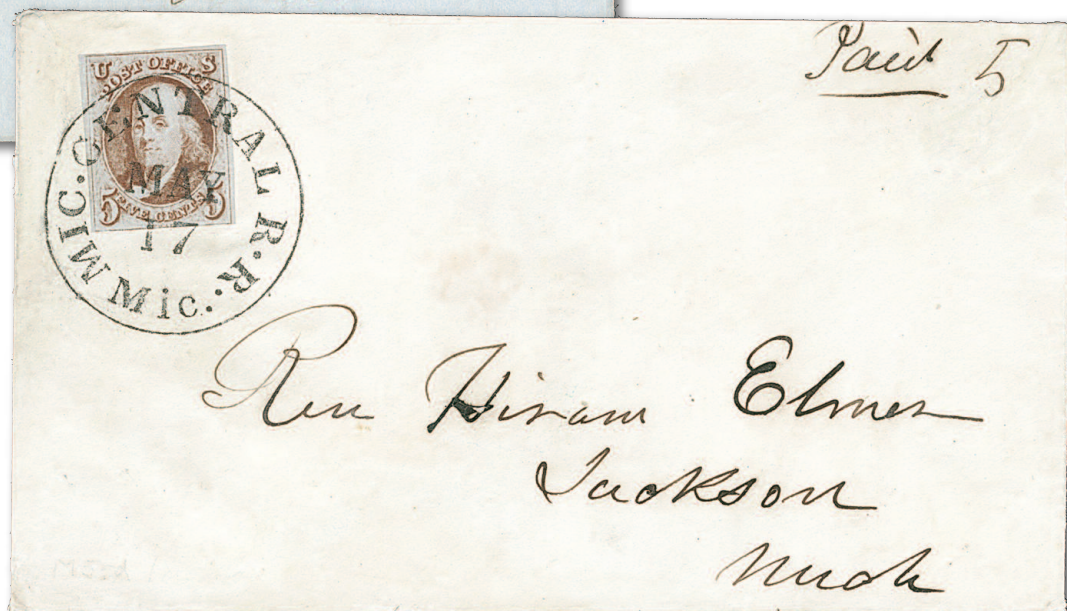 Paid 5
U S
POST OFFICE
FIVE CENTS
5 5
MIC. CENTRAL R.R.
MAY
17
Mic.
Rev Hiram Elmer
Jackson
Mich